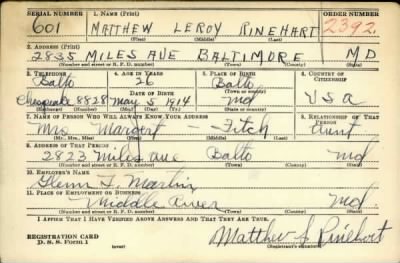 SERIAL NUMBER 1. NAME (Print) ORDER NUMBER
601 MATTHEW LEROY RINEHART 2392
(First) (Middle) (Last)
2. ADDRESS (Print)
2835 MILES AVE BALTIMORE MD
(Number and street or R. F. D. number) (Town) (County) (State)
3. TELEPHONE 4. AGE IN YEARS 5. PLACE OF BIRTH 6. COUNTRY OF CITIZENSHIP
Balto 26 Balto
DATE OF BIRTH (Town or county)
Chesapeake 8828 May 5 1914 Md USA
(Exchange) (Number) (Mo.) (Day) (Yr.) (State or country)
7. NAME OF PERSON WHO WILL ALWAYS KNOW YOUR ADDRESS 8. RELATIONSHIP OF THAT PERSON
Mrs Margert - Fitch aunt
(Mr., Mrs., Miss) (First) (Middle) (Last)
9. ADDRESS OF THAT PERSON
2823 Miles ave Balto Md
(Number and street or R. F. D. number) (Town) (County) (State)
10. EMPLOYER'S NAME
Glenn L. Martin
11. PLACE OF EMPLOYMENT OR BUSINESS
Middle River Md.
(Number and street or R. F. D. number) (Town) (County) (State)
I AFFIRM THAT I HAVE VERIFIED ABOVE ANSWERS AND THAT THEY ARE TRUE.
REGISTRATION CARD
D. S. S. Form 1 (over) Matthew L Rinehart
(Registrant's signature)